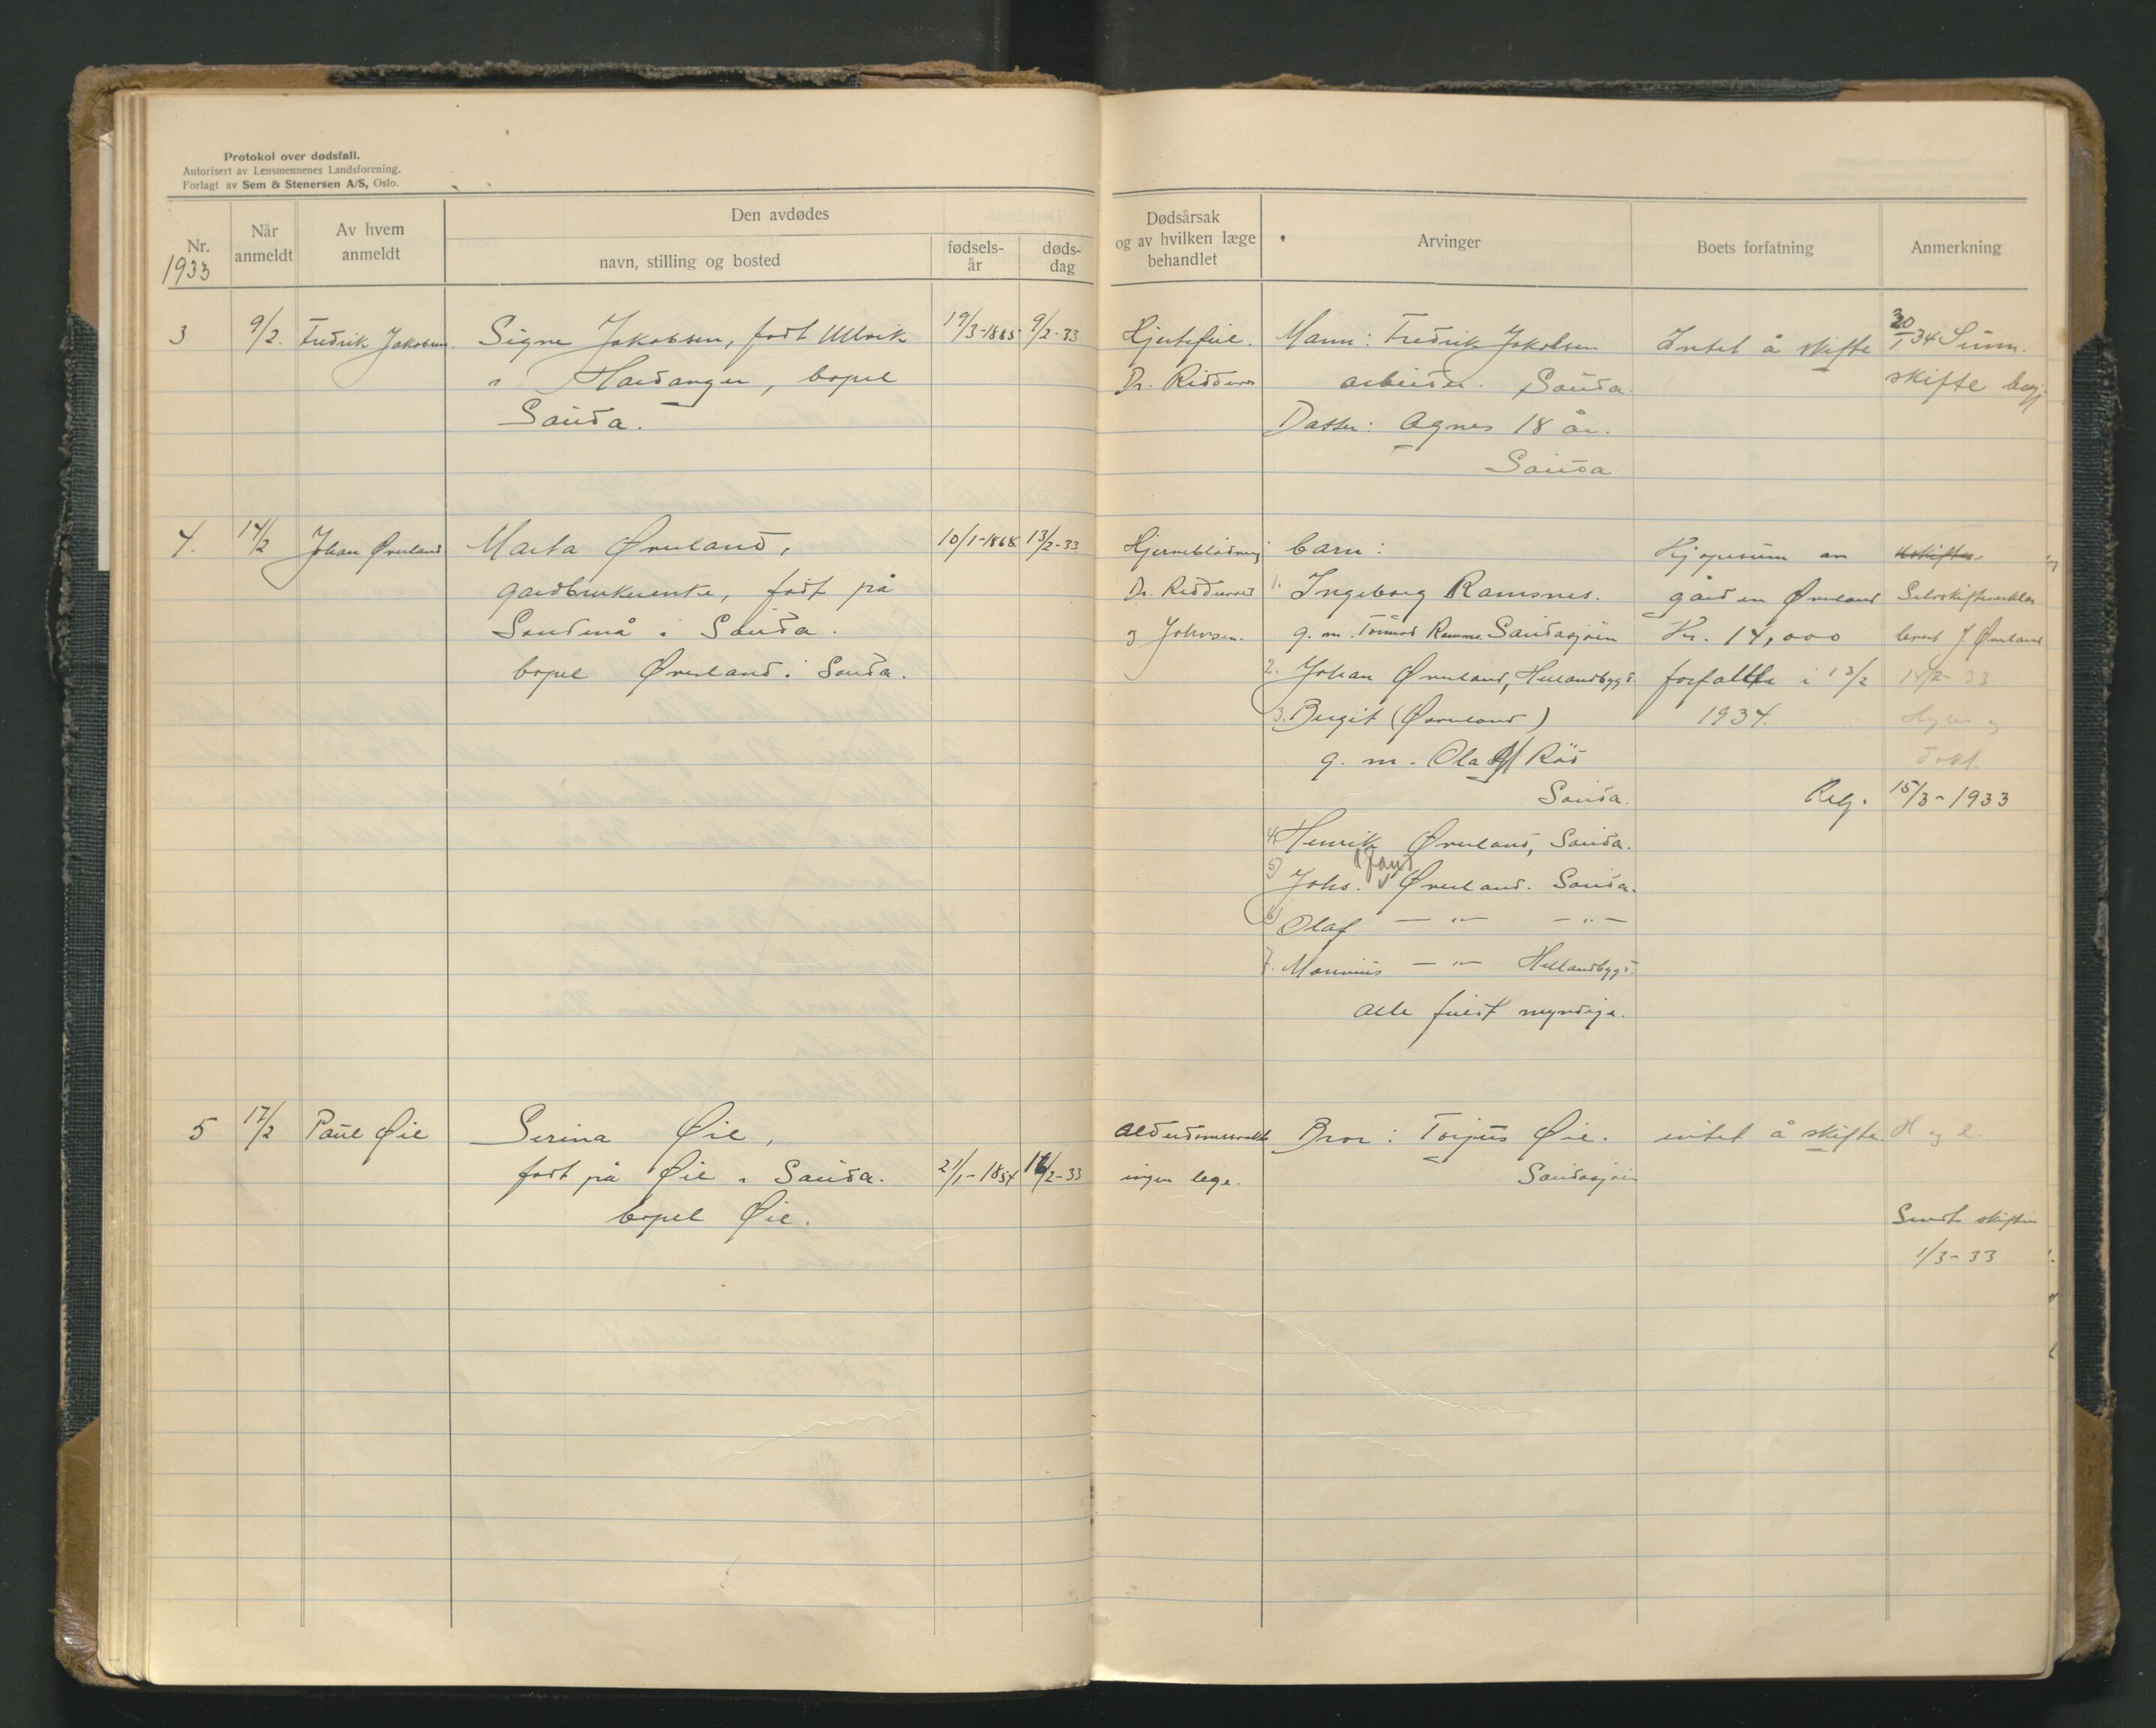 Protokol over dødsfall.
Autorisert av Lensmennenes Landsforening.
Forlagt av Sem & Stenersen A/S, Oslo.
Nr.
1933
Når
anmeldt
Av hvem
anmeldt
Den avdødes
navn, stilling og bosted
fødsels-
år
døds-
dag
Dødsårsak
og av hvilken læge
behandlet
Arvinger
Boets forfatning
Anmerkning
3
9/2.
Fredrik Jakobsen
Signe Jakobsen, født Ullvik
i Hardanger, bopel
Sauda.
19/3-1885
9/2-33
Hjertefeil.
Dr. Riddervold
Mann: Fredrik Jakobsen
arbeider. Sauda.
Datter: Agnes 18 år.
Sauda
Intet å skifte
34 Summ.
skifte
4.
14/2
Johan Øverland
Marta Øverland,
gardbrukerenke, født på
Sandenå i Sauda.
bopel Øverland i Sauda.
10/1-1868
13/2-33
Hjerneblødning
Dr. Riddervold
og Johnsen.
barn:
1. Ingeborg Ramsnes.
g. m. Ramsnes Saudasjøen
2. Johan Øverland, Hellandbygd
3. Bergit (Øverland)
g. m. Ola Rød
Sauda.
4. Henrik Øverland, Sauda.
5) Johs. Øverland. Sauda.
6) Olaf — " — — " —
7. Monnius — " — Hellandbygd.
alle fulst myndige.
Kjøpesum av
gården Øverland
Kr. 14,000
forfalt i 13/2
1934.
Selvskifteerklær
levert J Øverland
14/2-33
Reg. 15/3-1933
5
17/2
Paul Øie
Serina Øie,
født på Øie i Sauda.
bopel Øie.
21/1-1854
16/2-33
Alderdomssvakh
ingen lege.
Bror: Torjus Øie.
Saudasjøen
intet å skifte.
H og l.
Sendt skifter
1/3-33